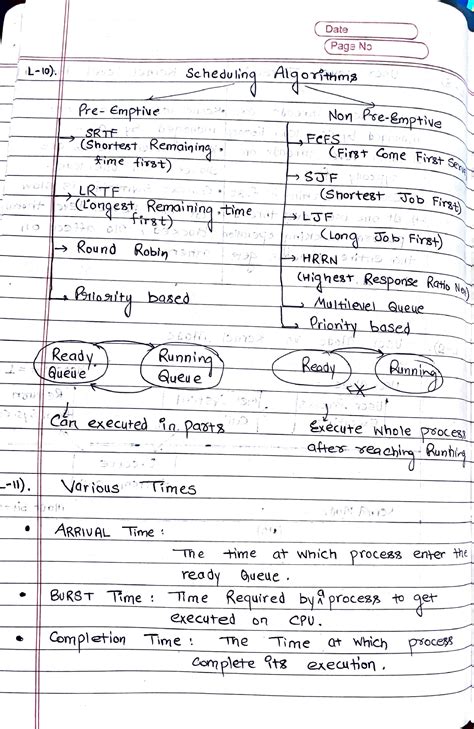 Date
Page No
L-10).
Scheduling Algorithms
Pre-Emptive
SRTF
(Shortest Remaining
time first)
LRTF
(Longest Remaining time
first)
Round Robin
Priority based
Non Pre-Emptive
FCFS
(First Come First Serve
SJF
(Shortest Job First)
LJF
(Long Job First)
HRRN
(Highest Response Ratio
Multilevel Queue
Priority based
Ready
Queue
Running
Queue
Ready
Running
X
Can executed in parts
Execute whole process
after reaching Running
L-11).
Various Times
• ARRIVAL Time :
The time at which process enter the
ready Queue.
• BURST Time : Time Required by a process to get
executed on CPU.
• Completion Time : The Time at which process
complete its execution.